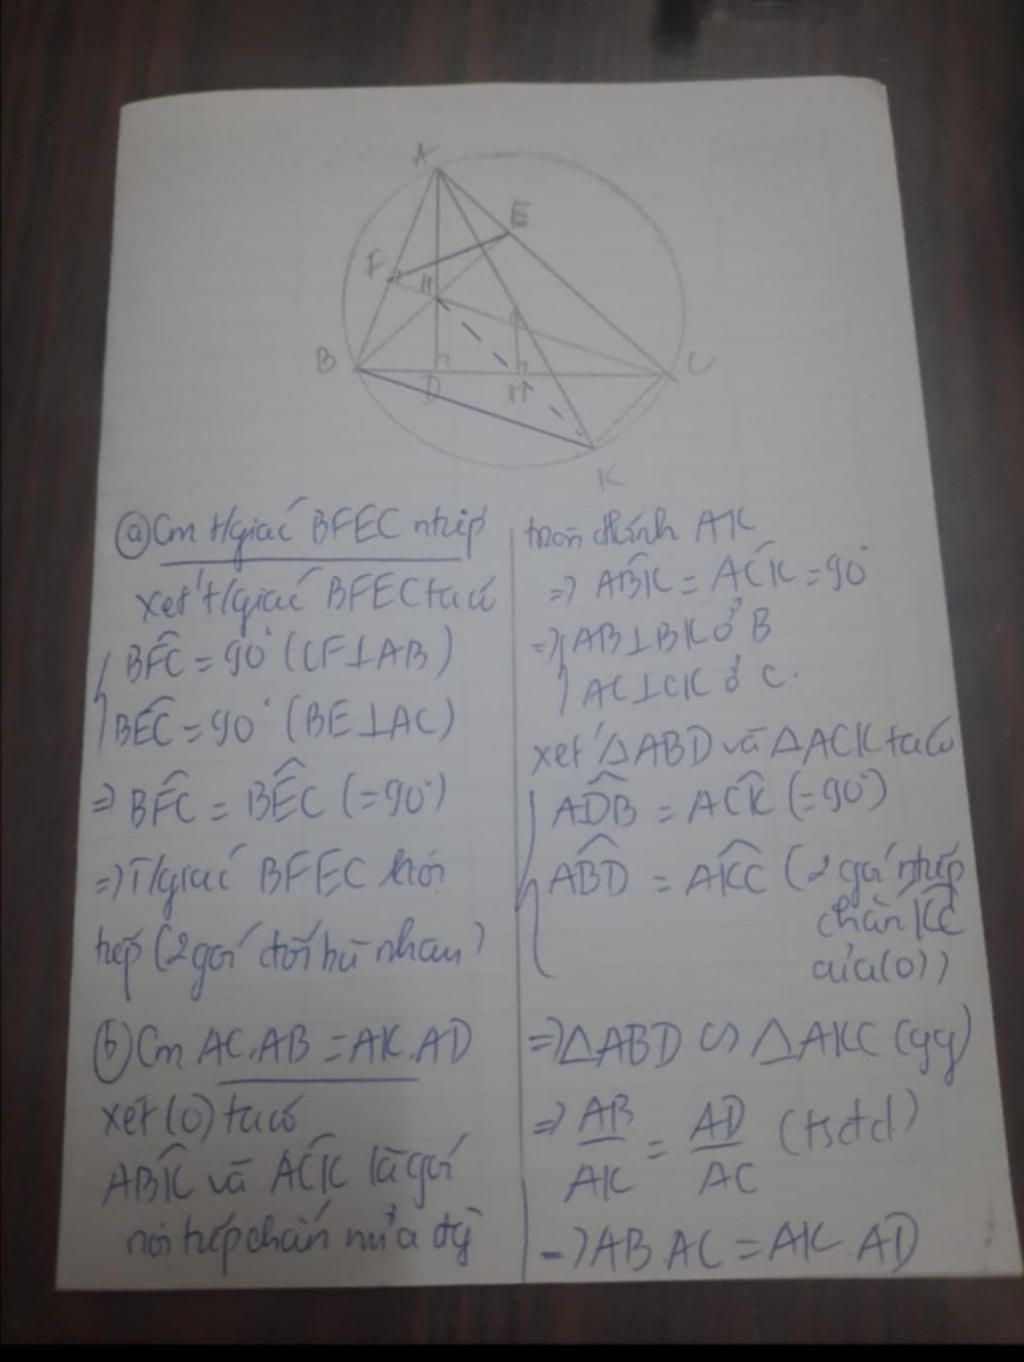 A
E
F
H
B
D
M
C
K
ⓐ Cm t/giác BFEC ntiếp
xét t/giác BFEC ta có
BF̂C = 90° (CF⊥AB)
BÊC = 90° (BE⊥AC)
=> BF̂C = BÊC (=90°)
=> T/giác BFEC nội
tiếp (2 góc đối bù nhau)
ⓑ Cm AC.AB = AK.AD
xét (O) ta có
AB̂K và AĈK là góc
nội tiếp chắn nửa đg
tròn đkính AK
=> AB̂K = AĈK = 90°
=> AB⊥BK ở B
AC⊥CK ở C.
xét ΔABD và ΔACK ta có
AD̂B = AĈK (=90°)
AB̂D = AK̂C (2 góc ntiếp
chắn KC
của (O))
=> ΔABD ∽ ΔAKC (gg)
=> AB/AK = AD/AC (tsđd)
=> AB AC = AK.AD